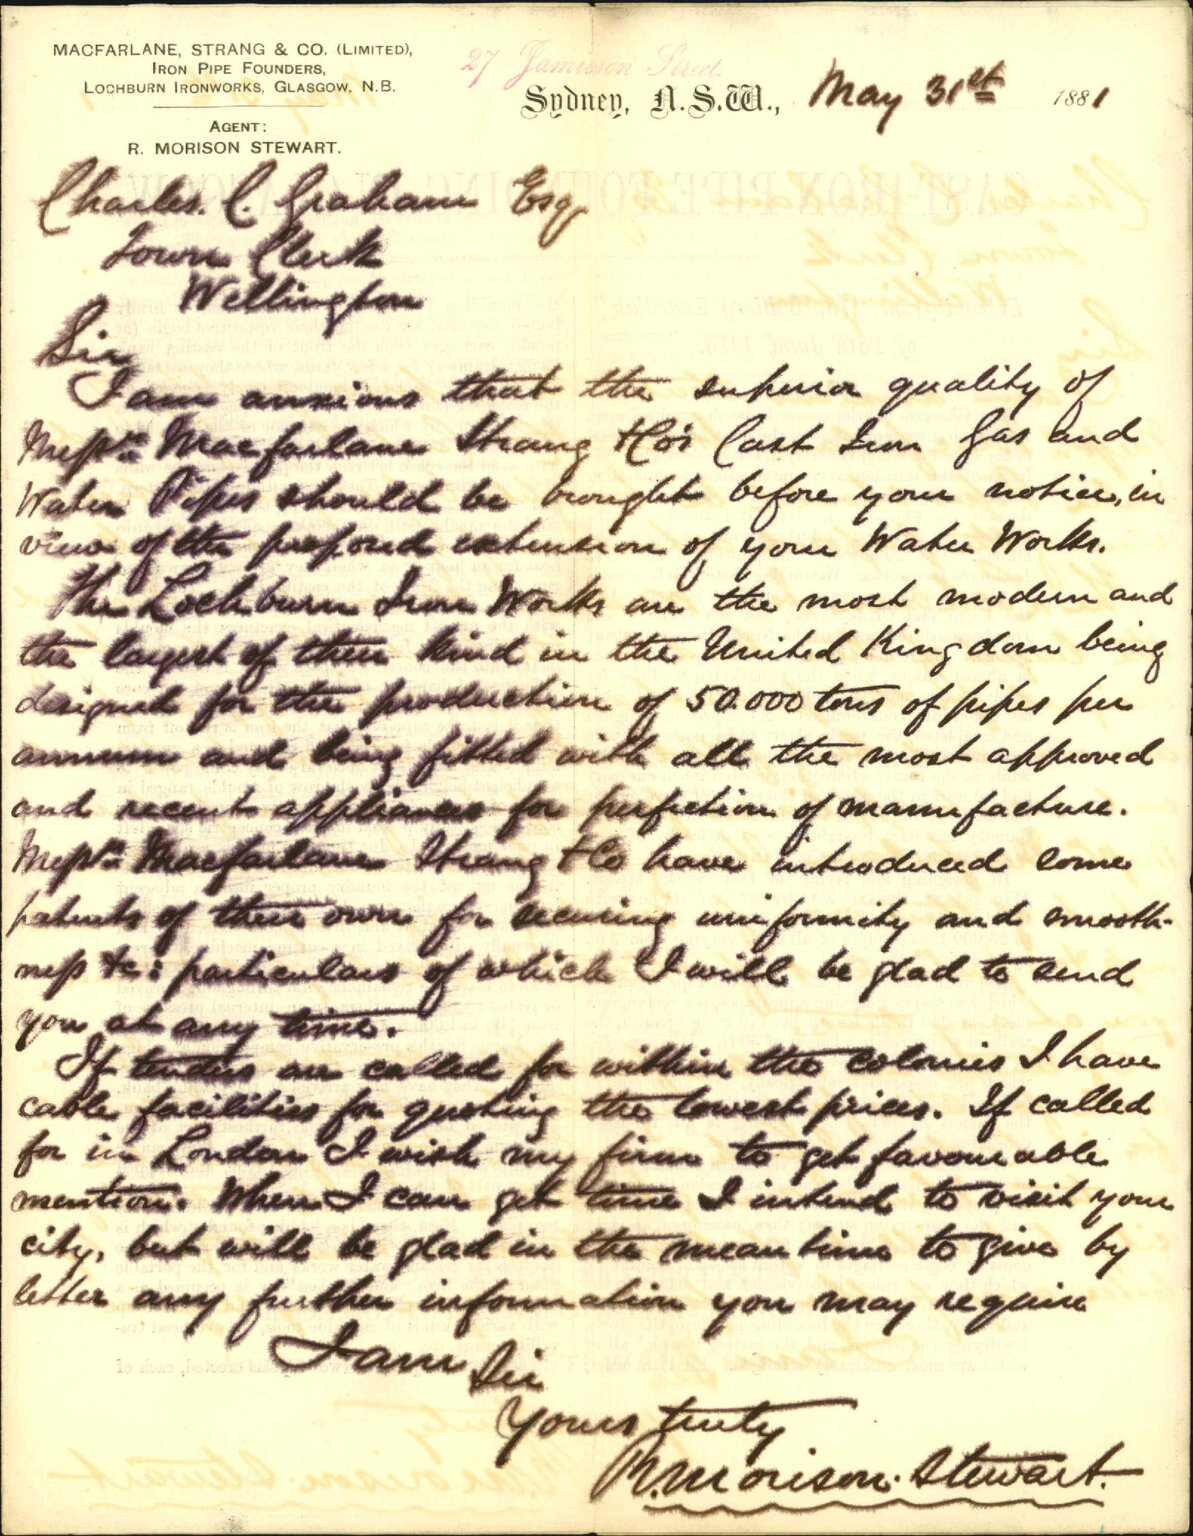 MACFARLANE, STRANG & CO. (LIMITED),
IRON PIPE FOUNDERS,
LOCHBURN IRONWORKS, GLASGOW, N.B.
AGENT:
R. MORISON STEWART.
27 Jamieson Street.
Sydney, N.S.W., May 31st 1881
Charles. C. Graham Esq
Town Clerk
Wellington
Sir
I am anxious that the superior quality of
Messrs Macfarlane Strang & Co's Cast Iron Gas and
Water Pipes should be brought before your notice, in
view of the proposed extension of your Water Works.
The Lochburn Iron Works are the most modern and
the largest of their kind in the United Kingdom being
designed for the production of 50.000 tons of pipes per
annum and being fitted with all the most approved
and recent appliances for perfection of manufacture.
Messrs Macfarlane Strang & Co have introduced some
patents of their own for securing uniformity and smooth-
ness &c: particulars of which I will be glad to send
you at any time.
If tenders are called for within the colonies I have
cable facilities for quoting the lowest prices. If called
for in London I wish my firm to get favourable
mention. When I can get time I intend to visit your
city, but will be glad in the meantime to give by
letter any further information you may require
I am Sir
Yours truly
R. Morison. Stewart.